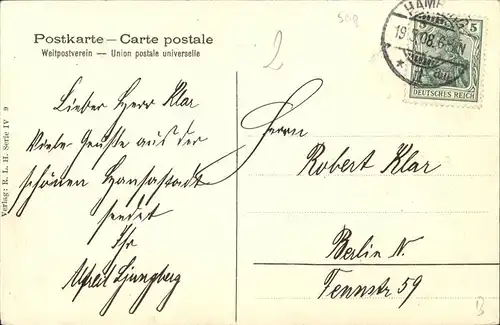 508
2
Postkarte – Carte postale
Weltpostverein — Union postale universelle
HAMBURG
19.3.08.6-
5
DEUTSCHES REICH
Lieber Herr Klar
Viele Grüße aus der
schönen Hansastadt
sendet
Ihr
Alfred Ljungberg
Herrn
Robert Klar
Berlin N.
Tennstr 59
B
Verlag: R. L. H. Serie IV 9